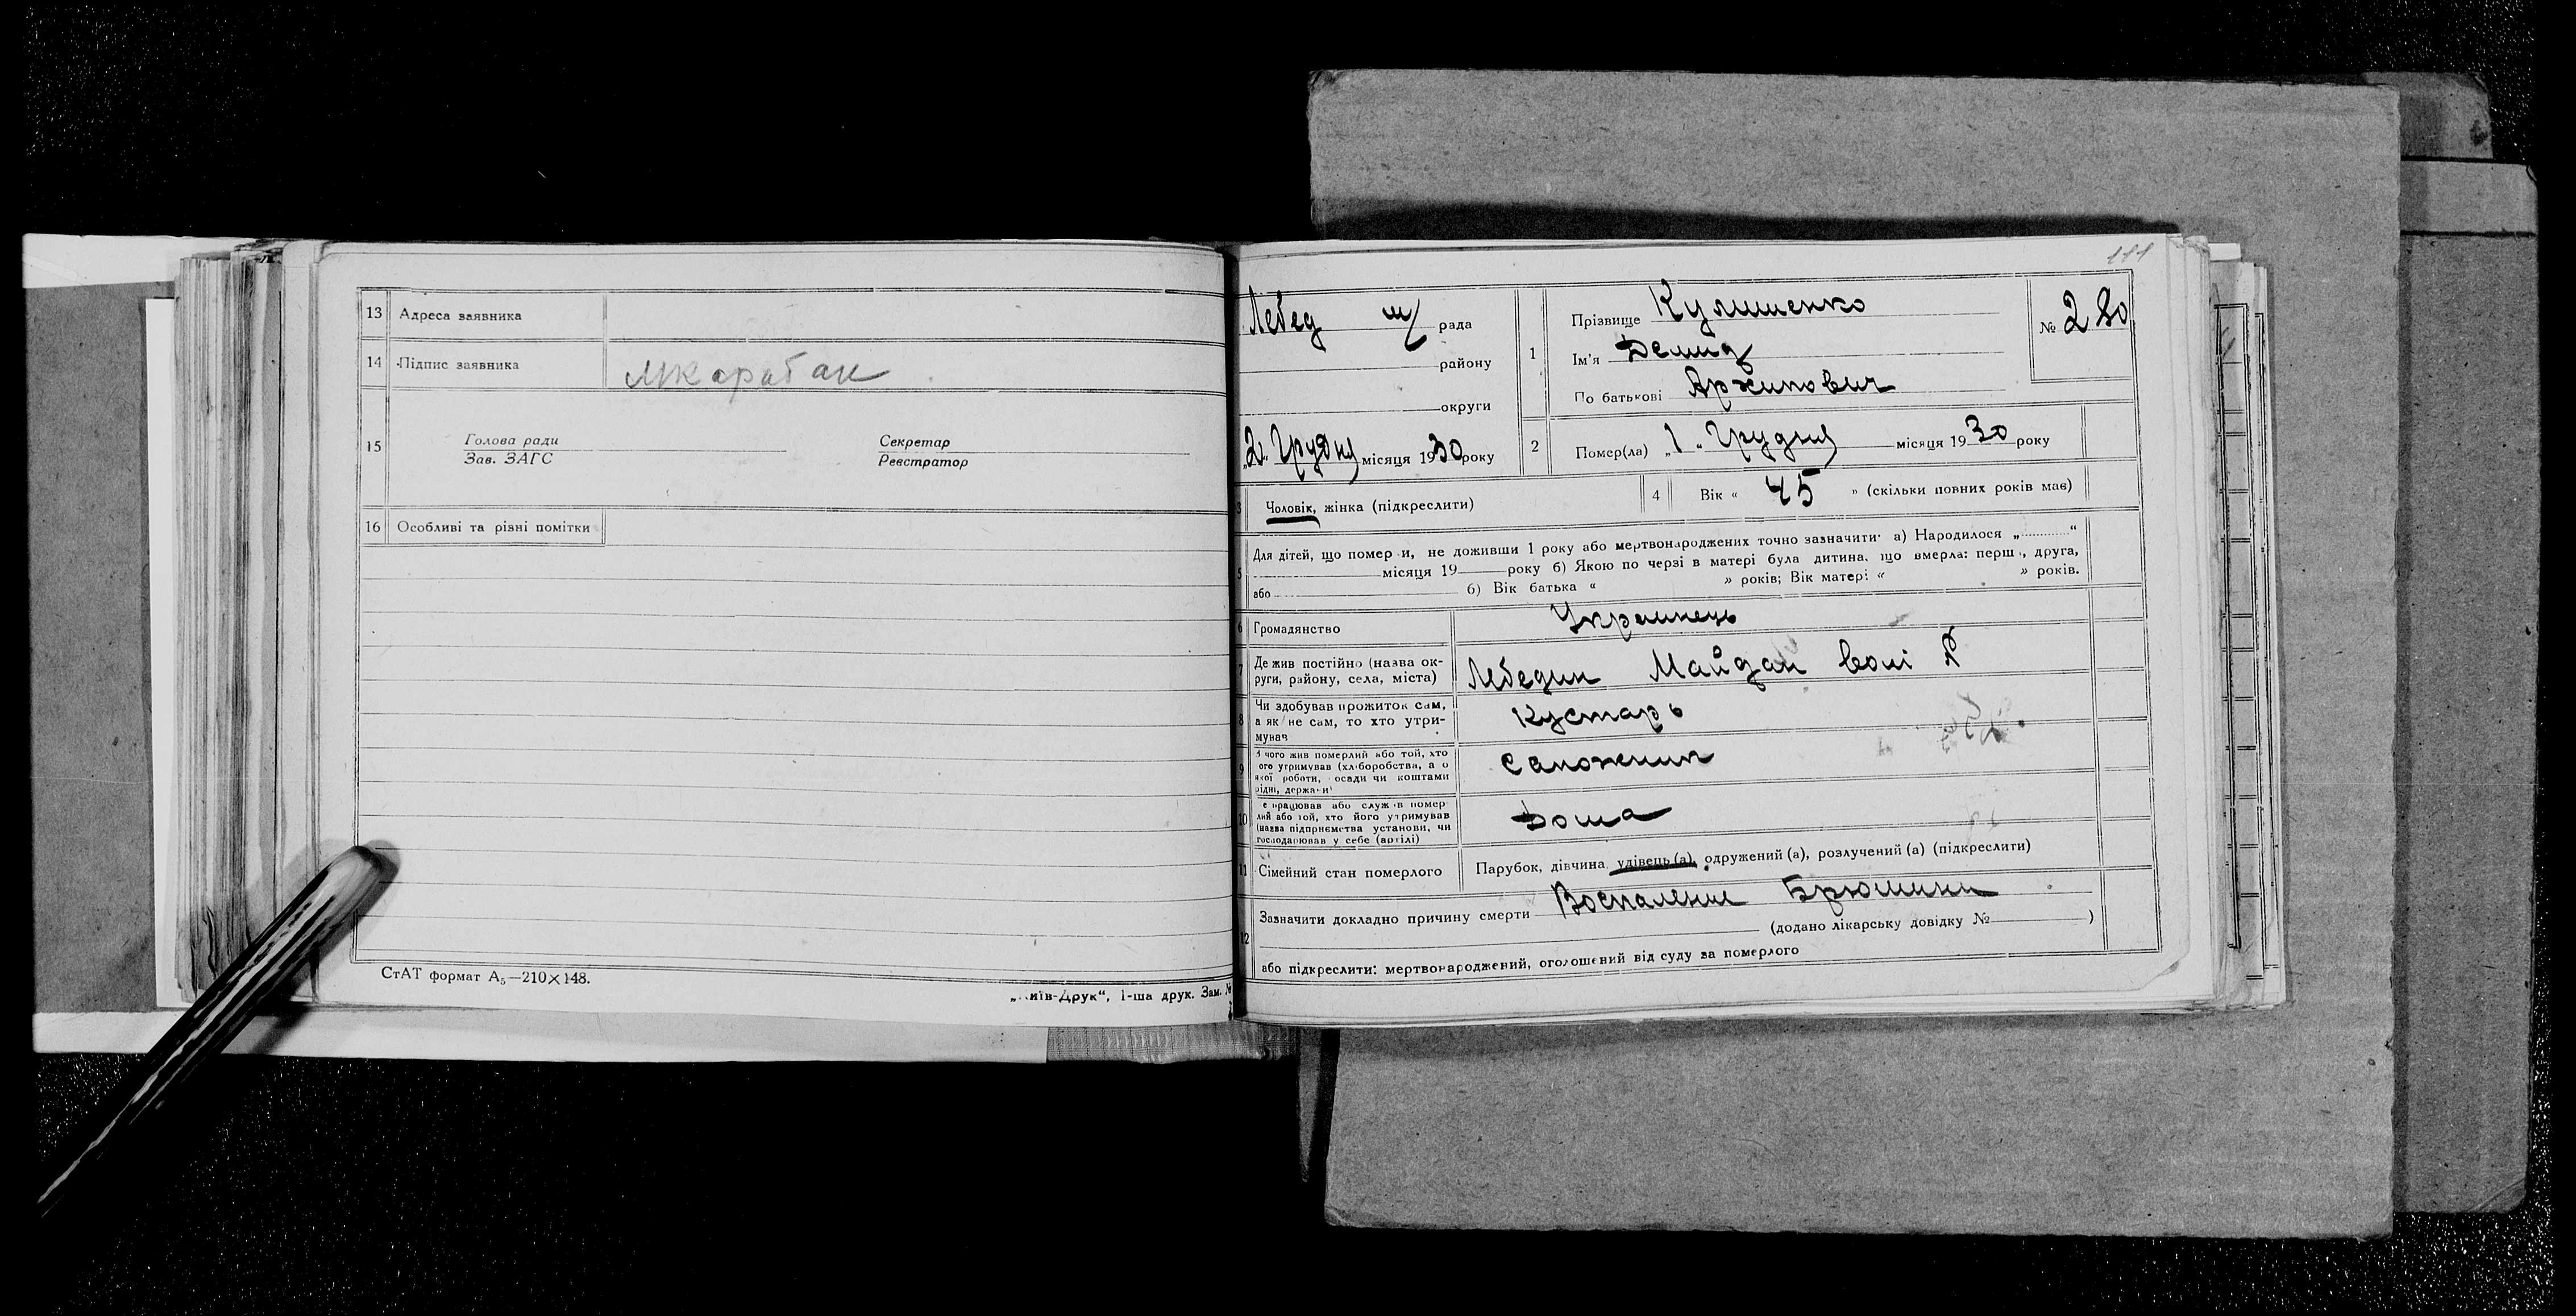 13 Адреса заявника
14 Підпис заявника
15 Голова ради Секретар
Зав. ЗАГС Реєстратор
16 Особливі та різні помітки
СтАТ формат А₅—210×148.
„Київ-Друк“, 1-ша друк. Зам. №
111
Лебед м/ рада
району
округи
„2“ Грудня місяця 1930 року
1 Прізвище Кулишенко
Ім'я Демид
По батькові Архипович
№ 280
2 Помер(ла) „1“ Грудня місяця 1930 року
3 Чоловік, жінка (підкреслити)
4 Вік « 45 » (скільки повних років мав)
5 Для дітей, що померли, не доживши 1 року або мертвонароджених точно зазначити: а) Народилося „ “
місяця 19 року б) Якою по черзі в матері була дитина, що вмерла: перша, друга,
або б) Вік батька « » років; Вік матері « » років.
6 Громадянство Українець
7 Де жив постійно (назва ок-
руги, району, села, міста) Лебедин Майдан волі
8 Чи здобував прожиток сам,
а як не сам, то хто утри-
мував Кустарь
9 З чого жив померлий або той, хто
його утримував (хліборобства, а о
якої роботи, посади чи коштами
рідні, держави) Сапожник
10 Де працював або служив помер-
лий або той, хто його утримував
(назва підприємства установи, чи
господарював у себе (артілі) Дома
11 Сімейний стан померлого Парубок, дівчина, удівець(а), одружений(а), розлучений(а) (підкреслити)
12 Зазначити докладно причину смерти Воспаление Брюшини
(додано лікарську довідку № )
або підкреслити: мертвонароджений, оголошений від суду за померлого